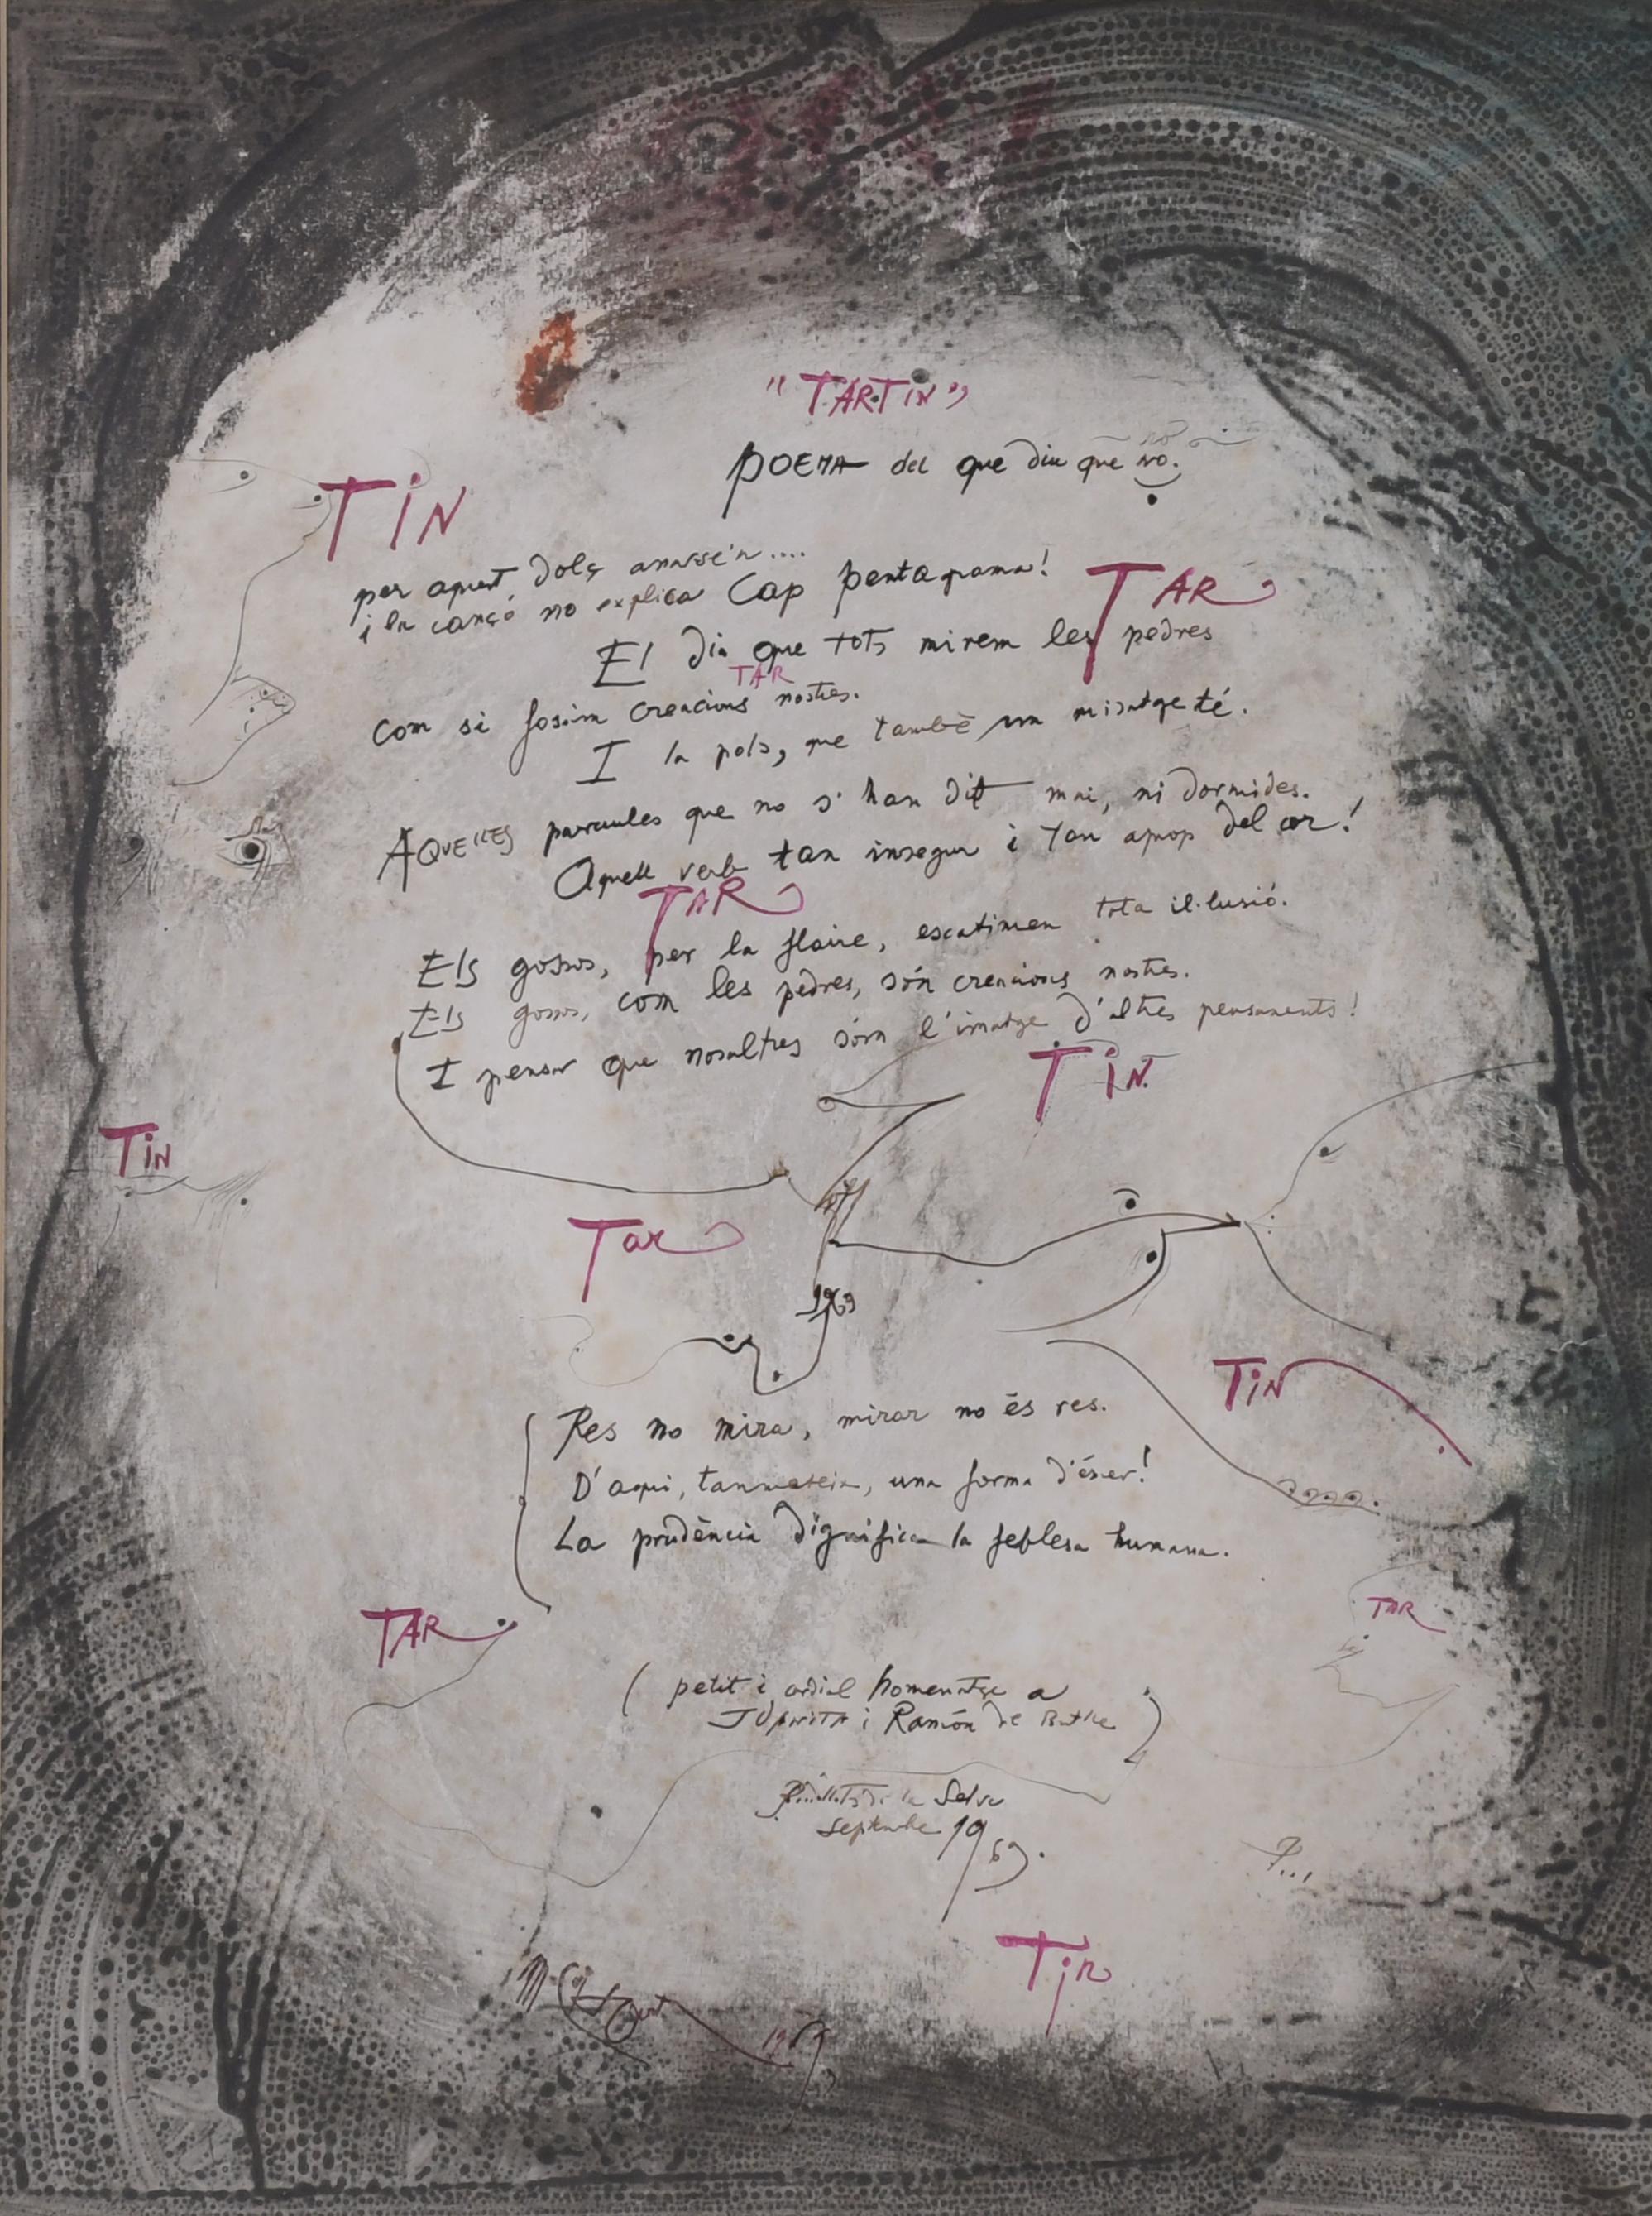 "TARTIN"
POEMA del que diu que no.
TIN
per aquest dolç
i la cançó no explica Cap pentagrama!
TAR
El dia que tots mirem les pedres
TAR
com si fossim creacions nostres.
I la pols, que també un missatge té.
AQUELLES paraules que no s'han dit mai, ni dormides.
Aquell verb tan insegur i tan aprop del cor!
TAR
Els gossos, per la flaire, escatimen tota il·lusió.
Els gossos, com les pedres, són creacions nostres.
I pensar que nosaltres sóm l'imatge d'altres pensaments!
TIN
TIN
Tar
1969
TIN
Res no mira, mirar no és res.
D'aqui, tanmateix, una forma d'ésser!
La prudència dignifica la feblesa humana.
TAR
TAR
( petit i cordial homenatge a
i Ramón de )
de la Selva
septembre 1969.
P...
Tin